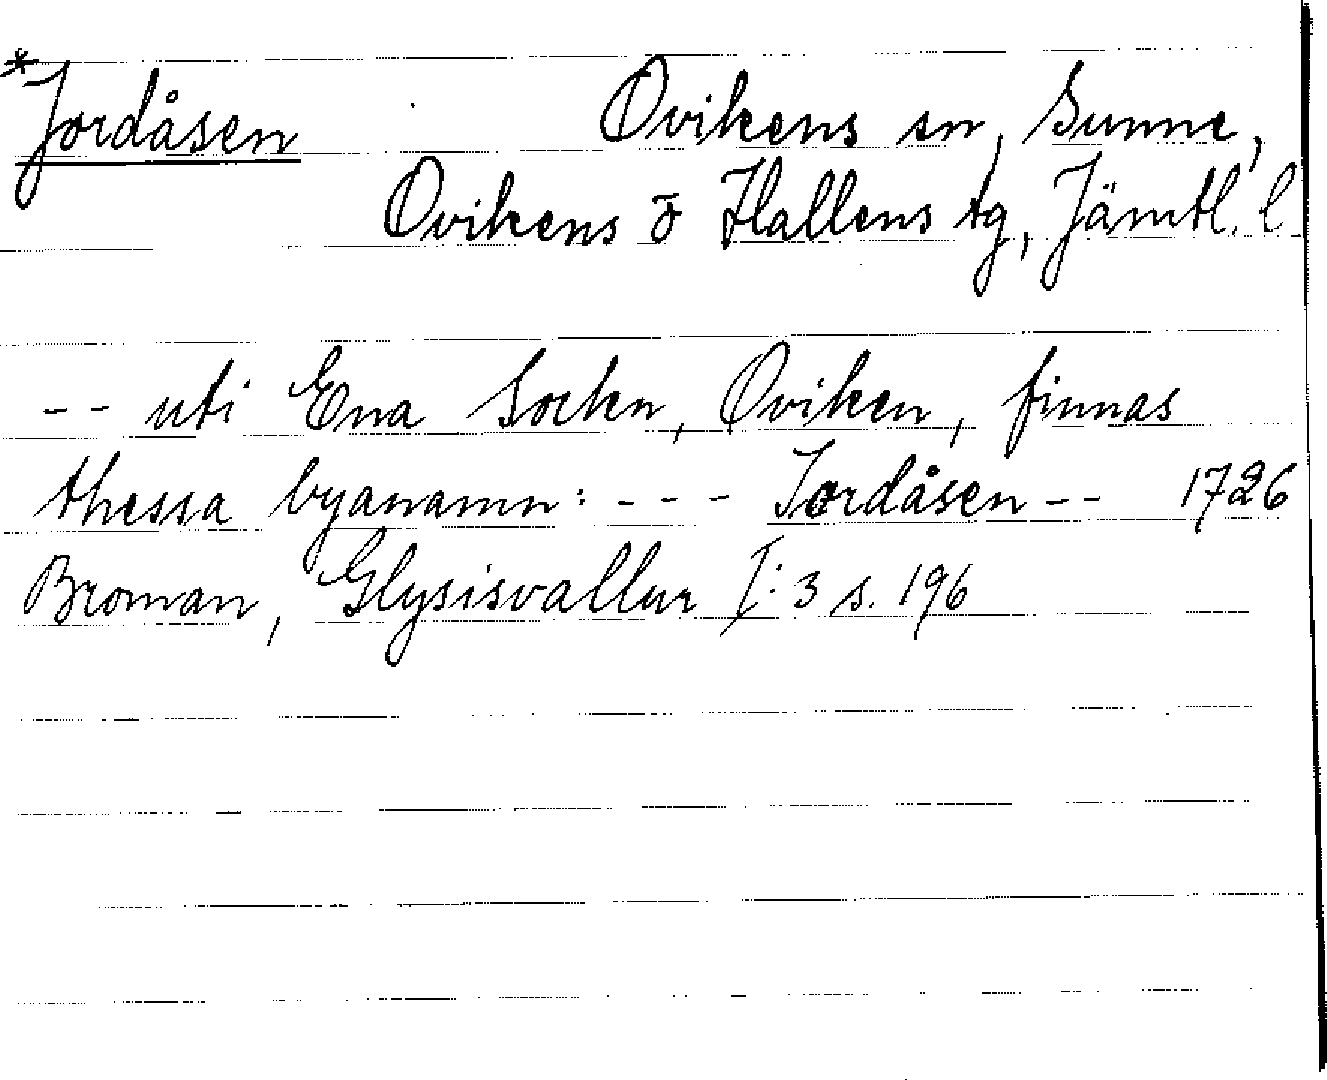 *Jordåsen Ovikens sn, Sunne,
Ovikens o Hallens tg, Jämtl. l
-- uti Ena Sockn, Oviken, finnas
thessa byanamn: --- Jordåsen -- 1726
Broman, Glysisvallur I:3 s. 196